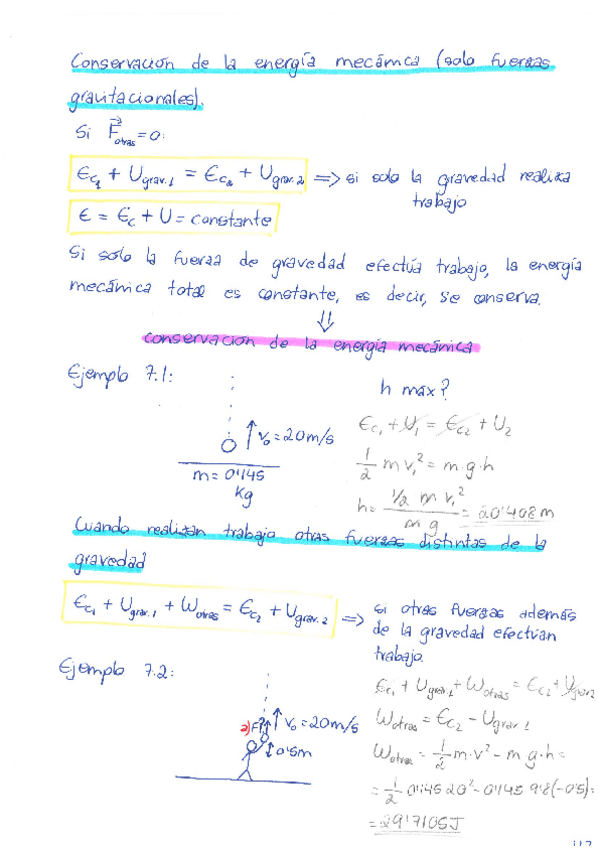 Conservación de la energía mecánica (solo fuerzas
gravitacionales).
Si F⃗otras = 0:
Ec₁ + Ugrav.1 = Ec₂ + Ugrav.2 => si solo la gravedad realiza
trabajo
E = Ec + U = constante
Si solo la fuerza de gravedad efectúa trabajo, la energía
mecánica total es constante, es decir, se conserva.
⇓
conservación de la energía mecánica
Ejemplo 7.1:
h max?
v₀ = 20 m/s
m = 0'145
Kg
Ec₁ + U₁ = Ec₂ + U₂
1/2 m v₁² = m · g · h
h = (1/2 m v₁²)/(m g) = 20'408 m
Cuando realizan trabajo otras fuerzas distintas de la
gravedad
Ec₁ + Ugrav.1 + Wotras = Ec₂ + Ugrav.2 => si otras fuerzas además
de la gravedad efectúan
trabajo.
Ejemplo 7.2:
a) F?
v₀ = 20 m/s
0'5m
Ec₁ + Ugrav.1 + Wotras = Ec₂ + Ugrav2
Wotras = Ec₂ - Ugrav.1
Wotras = 1/2 m · v² - m g · h =
= 1/2 0'145 20² - 0'145 9'8 (-0'5) =
= 29'7105 J